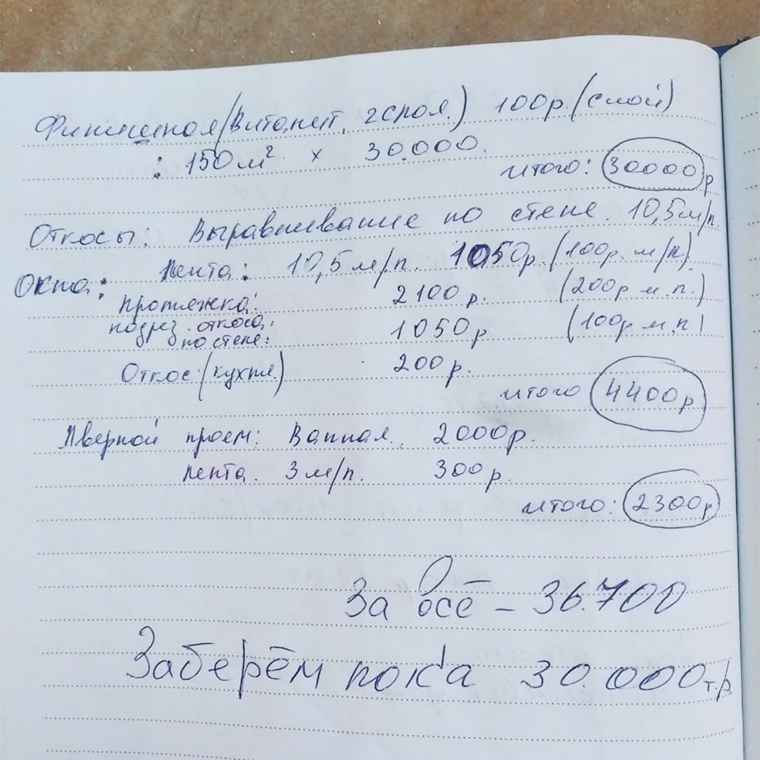 Финишная (Витонит, 2 слоя.) 100р. (слой)
: 150 м² х 30.000.
итого: 30000 р
Откосы: Выравнивание по стене. 10,5 м/п.
Окна: Лента: 10,5 м/п. 1050р. (100р. м/п)
протяжка: 2100р. (200р м.п.)
подрез. откоса. по стене: 1050р (100р м.п)
Откос: (кухня) 200р.
итого 4400р
Дверной проем: Ванная. 2000р.
лента. 3 м/п. 300р.
итого: 2300р
За всё – 36.700
Заберём пока 30 000 т.р.